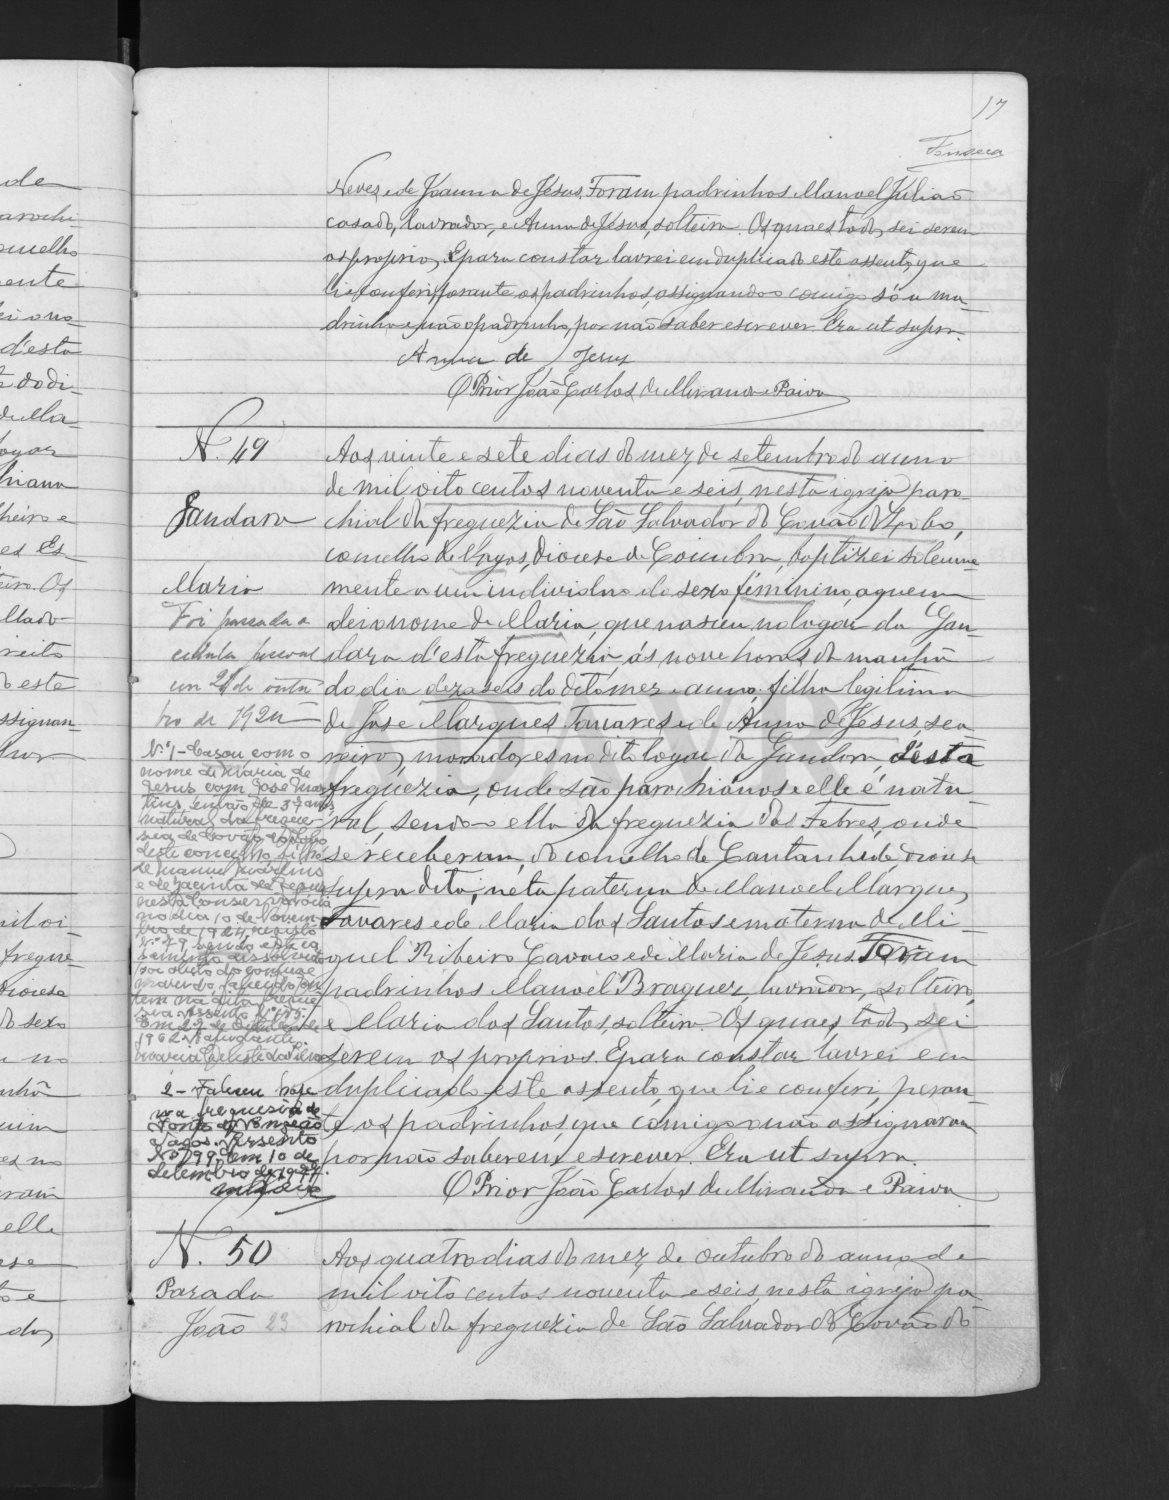 17
Fonseca
Neves, e de Joanna de Jesus. Foram padrinhos Manoel Julião
casado, lavrador, e Anna de Jesus, solteira. Os quaes todos sei serem
os proprios. E para constar lavrei em duplicado este assento, que
li e conferi perante os padrinhos, assignando comigo só a ma-
drinha e não o padrinho, por não saber escrever. Era ut supra.
Anna de Jesus
O Prior João Carlos de Miranda e Paiva
N. 49
Gandara
Maria
Foi passada a
cedula pessoal
em 21 de outu
bro de 1924
Aos vinte e sete dias do mez de setembro do anno
de mil oito centos noventa e seis, nesta igreja paro-
chial da freguezia de São Salvador do Covão do Lobo,
concelho de Vagos, diocese de Coimbra, baptizei solemne-
mente a um individuo do sexo feminino, a quem
dei o nome de Maria, que nasceu no logar da Gan-
dara d'esta freguezia, ás nove horas da manhã
do dia dezaseis do dito mez e anno, filha legitima
de Jose Marques Tavares e de Anna de Jesus, sea-
reiros, moradores no dito logar da Gandara, d'esta
freguezia, onde são parochianos e elle é natu-
ral, sendo ella da freguezia das Febres, onde
se receberam, do concelho de Cantanhede, diocese
supra dita; neta paterna de Manoel Marques
Tavares e de Maria dos Santos e materna de Mi-
guel Ribeiro Cavaco e de Maria de Jesus. Foram
padrinhos Manoel Braguez, lavrador, solteiro,
e Maria dos Santos, solteira. Os quaes todos sei
serem os proprios. E para constar lavrei em
duplicado este assento, que li e conferi, peran-
te os padrinhos, que comigo não assignaram
por não saberem escrever. Era ut supra.
O Prior João Carlos de Miranda e Paiva
N.º 1 - Casou com o
nome de Maria de
Jesus com José Mar
tins, então de 37 anos
natural da fregue-
sia de Covão do Lobo
deste concelho, filho
de Manuel Martins
e de Jacinta de Jesus
nesta Conservatória
no dia 10 de Novem-
bro de 1924, registo
N.º 79, sendo este ca
samento dissolvido
por óbito do conjuge
marido, falecido on
tem na dita fregue
sia. Assento N.º
Em 27 de
1962. A ajudante,
Maria Celeste da Silva
2 - Faleceu hoje
na freguesia de
Fonte de Angeão
Vagos. Assento
N.º 199. Em 10 de
Setembro de 1977.
N. 50
Parada
João 23
Aos quatro dias do mez de outubro do anno de
mil oito centos noventa e seis, nesta igreja pa
rochial da freguezia de São Salvador do Covão do